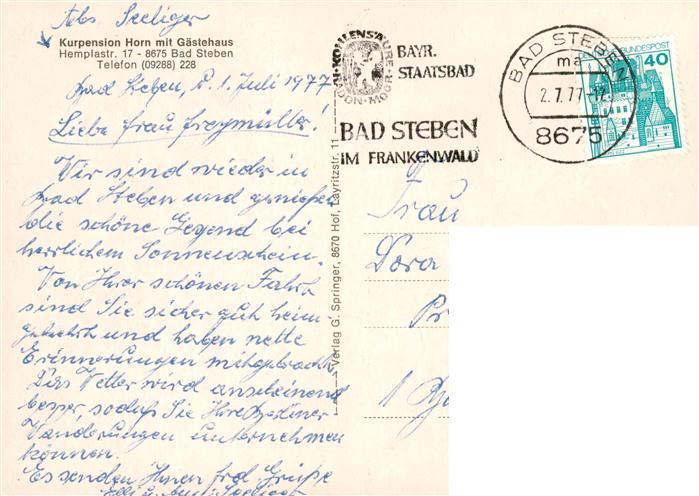 Abs. Seeliger
Kurpension Horn mit Gästehaus
Hemplastr. 17 - 8675 Bad Steben
Telefon (09288) 228
Bad Steben, d. 1. Juli 1977
Liebe Frau Freymüller!
Wir sind wieder in
Bad Steben und genießen
die schöne Gegend bei
herrlichem Sonnenschein.
Von Ihrer schönen Fahrt
sind Sie sicher gut heim-
gekehrt und haben nette
Erinnerungen mitgebracht.
Das Wetter wird anscheinend
besser, sodaß Sie Ihre
Wanderungen unternehmen
können.
Es senden Ihnen frdl. Grüße
Seeliger
Verlag G. Springer, 8670 Hof, Layritzstr. 11
KOHLENSÄURE
RADON-MOOR
BAYR.
STAATSBAD
BAD STEBEN
IM FRANKENWALD
BAD STEBEN
ma
2.7.77-12
8675
BUNDESPOST
40
Frau
Dora